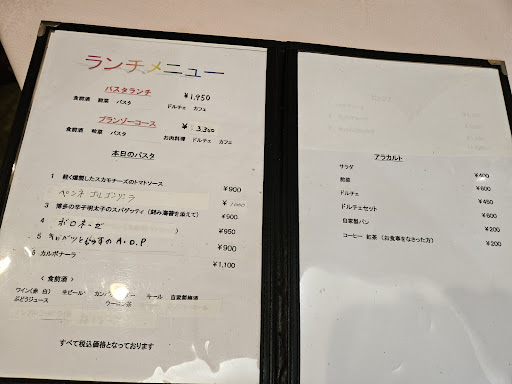 ランチメニュー
パスタランチ ¥1,950
食前酒 前菜 パスタ ドルチェ カフェ
プランゾーコース ¥3,300
食前酒 前菜 パスタ お肉料理 ドルチェ カフェ
本日のパスタ
1 軽く燻製したスカモチーズのトマトソース ¥900
ペンネ ゴルゴンゾーラ ¥1000
3 博多の辛子明太子のスパゲッティ(刻み海苔を添えて) ¥900
4 ボロネーゼ ¥950
5 キャベツと のA.O.P ¥900
6 カルボナーラ ¥1,100
< 食前酒 >
ワイン(赤 白) 生ビール カンパリ キール 自家製梅酒
ぶどうジュース ウーロン茶
すべて税込価格となっております
アラカルト
サラダ ¥400
前菜 ¥600
ドルチェ ¥450
ドルチェセット ¥600
自家製パン ¥200
コーヒー 紅茶(お食事をなさった方) ¥200